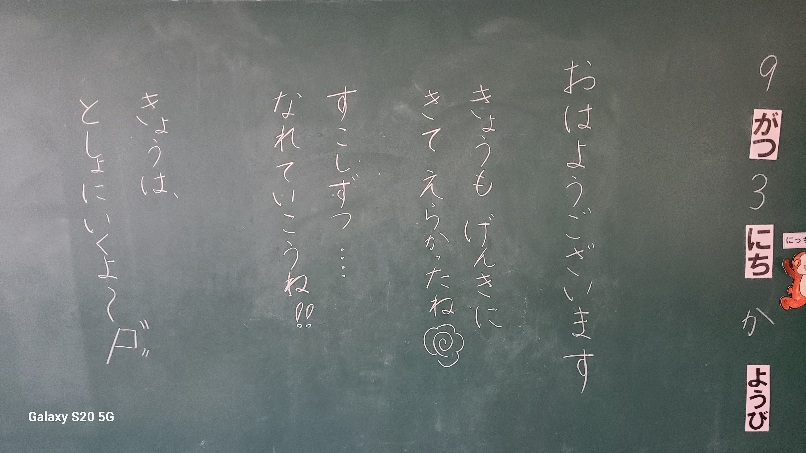 9がつ3にちかようび
おはようございます
きょうも げんきに
きて えらかったね
すこしずつ……
なれていこうね!!
きょうは、
としょにいくよ〜
にっち
Galaxy S20 5G